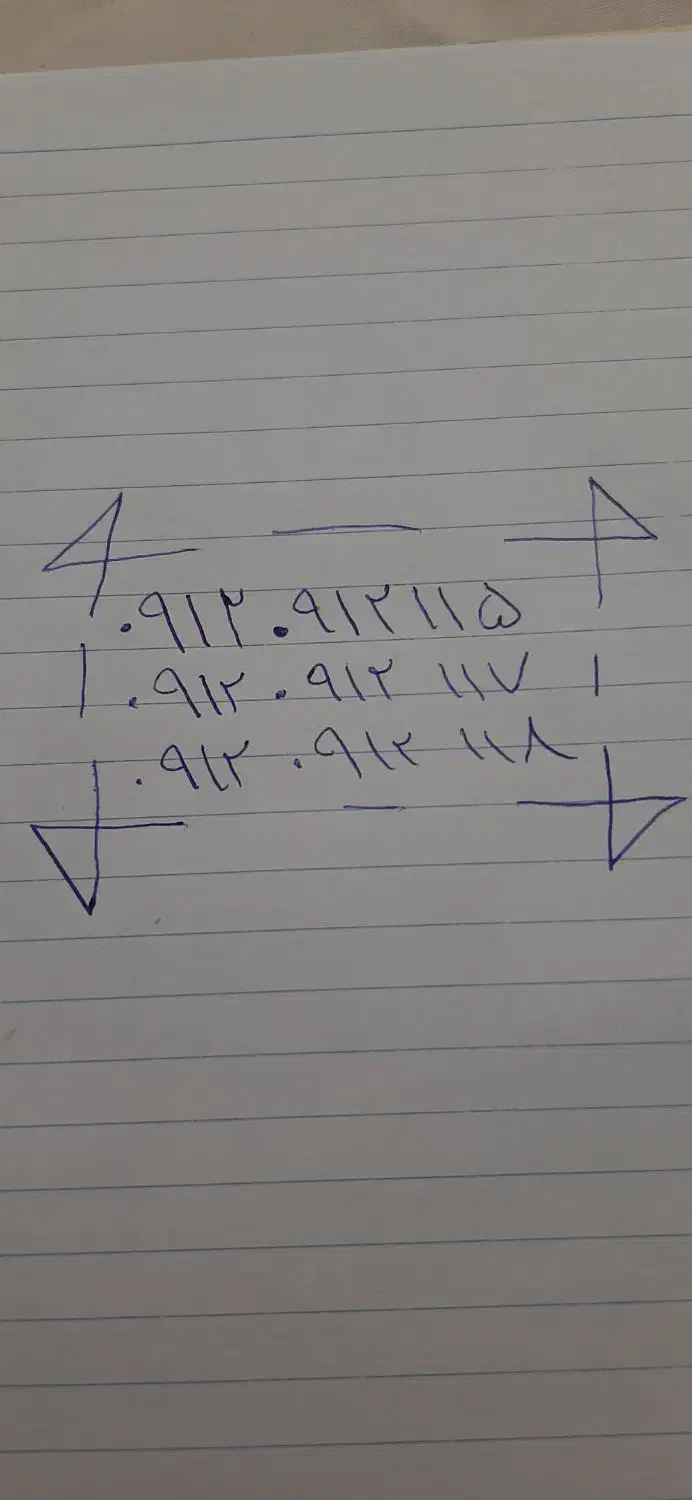 ۰۹۱۲۰۹۱۲۱۱۵
۰۹۱۲۰۹۱۲ ۱۱۷
۰۹۱۲ ۰۹۱۲ ۱۱۸